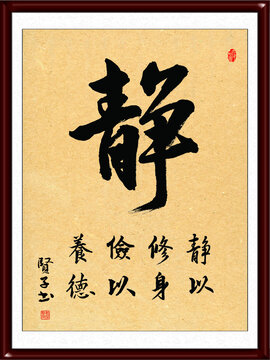 靜
靜以
修身
儉以
養德
賢子书